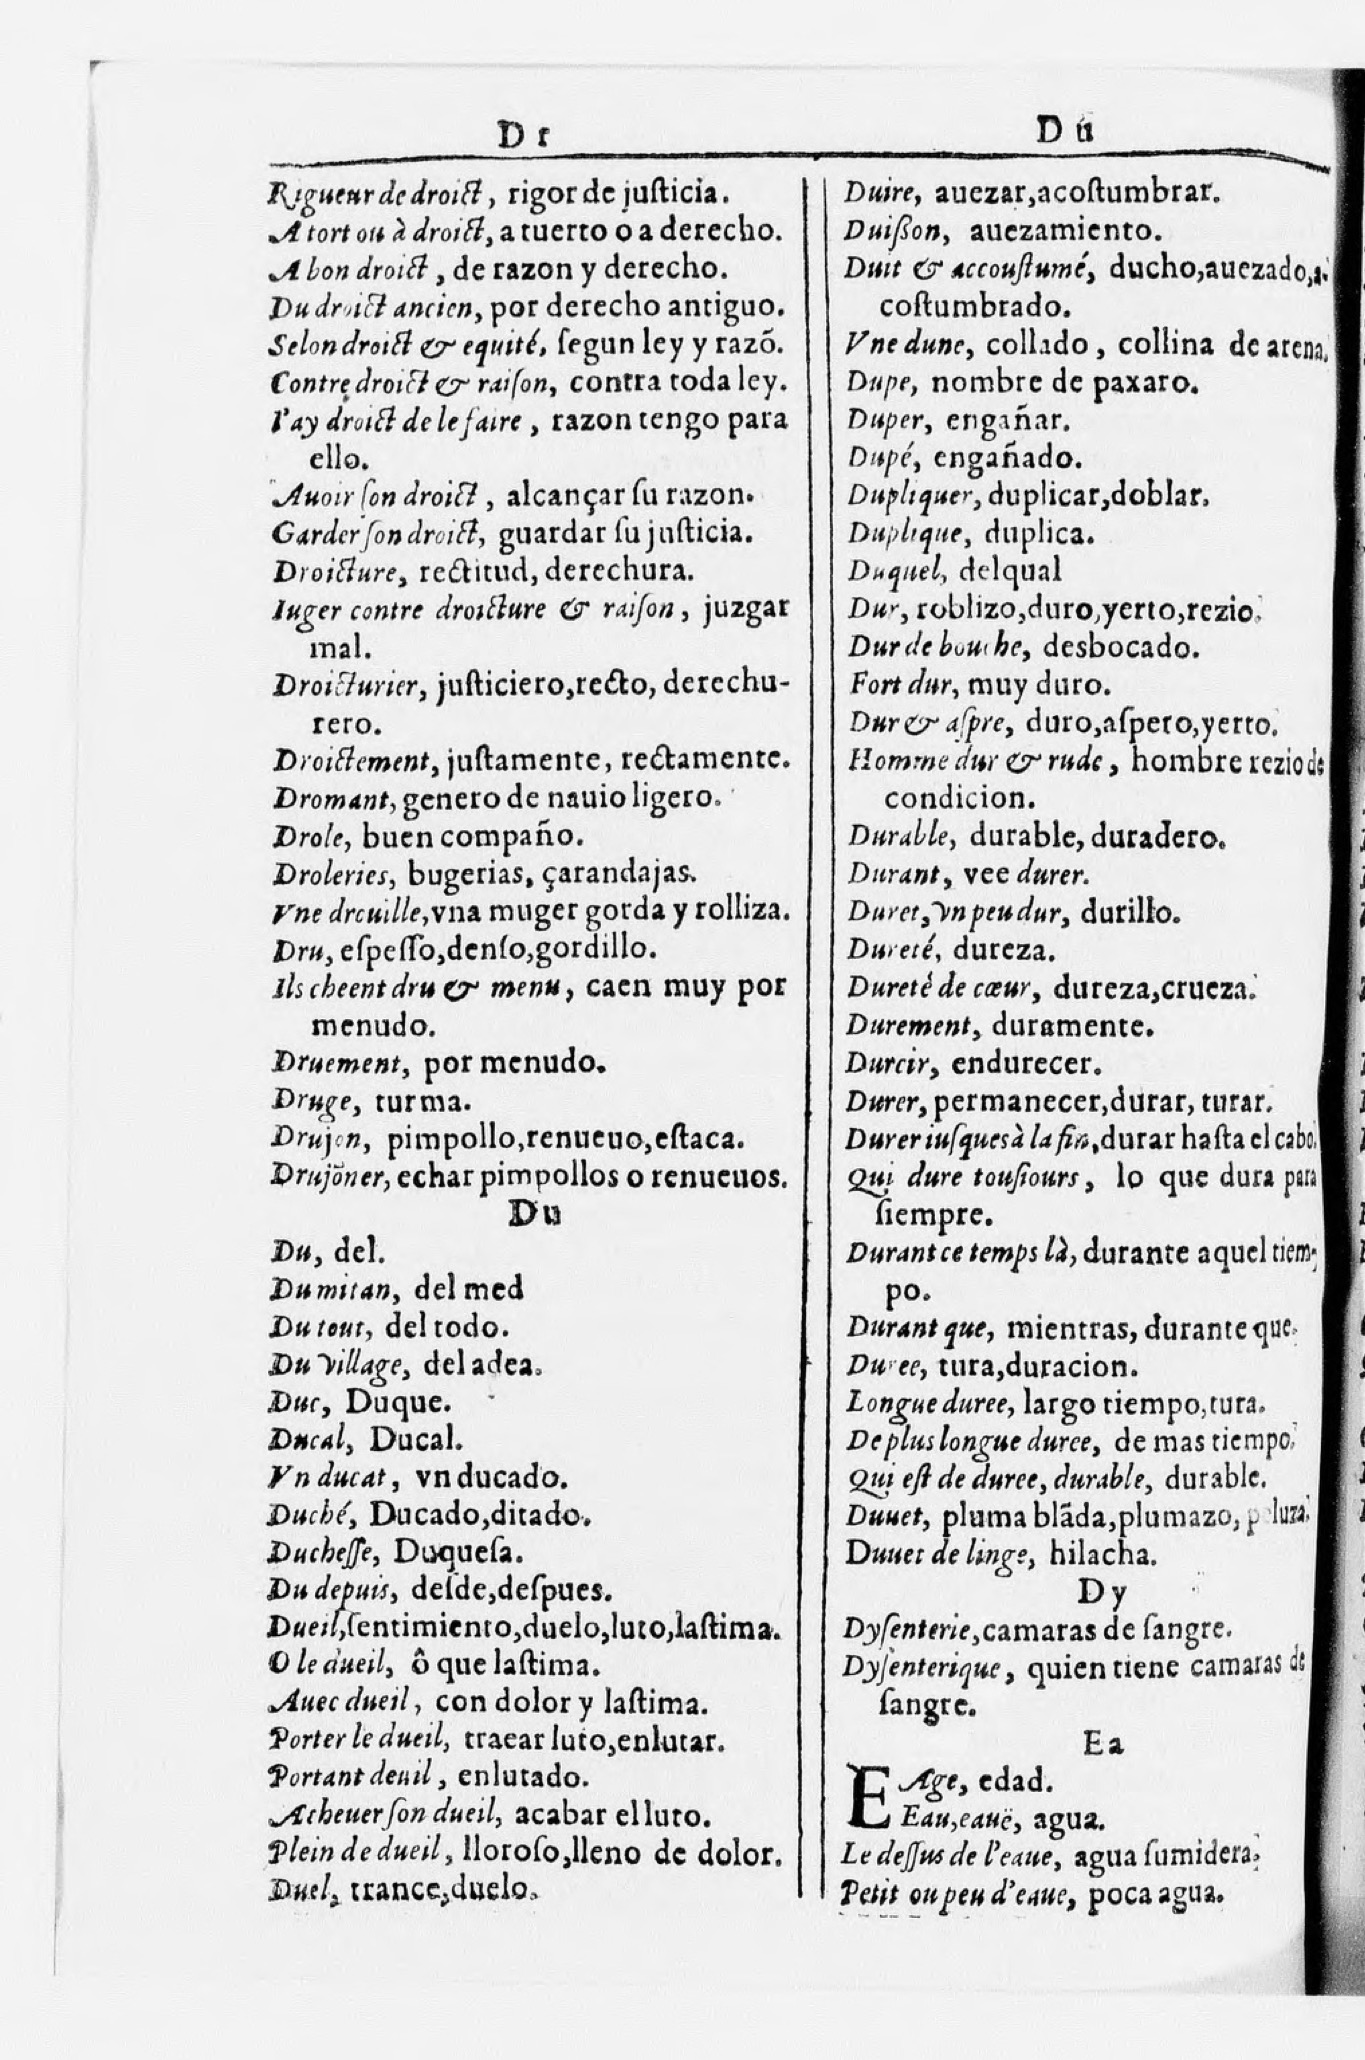 Dr
Rigueur de droict, rigor de juſticia.
A tort ou à droict, a tuerto o a derecho.
A bon droict, de razon y derecho.
Du droict ancien, por derecho antiguo.
Selon droict & equité, ſegun ley y razõ.
Contre droict & raiſon, contra toda ley.
I'ay droict de le faire, razon tengo para
ello.
Auoir ſon droict, alcançar ſu razon.
Garder ſon droict, guardar ſu juſticia.
Droicture, rectitud, derechura.
Iuger contre droicture & raiſon, juzgar
mal.
Droicturier, juſticiero, recto, derechu-
rero.
Droictement, juſtamente, rectamente.
Dromant, genero de nauio ligero.
Drole, buen compaño.
Droleries, bugerias, çarandajas.
Vne drouille, vna muger gorda y rolliza.
Dru, eſpeſſo, denſo, gordillo.
Ils cheent dru & menu, caen muy por
menudo.
Druement, por menudo.
Druge, turma.
Drujon, pimpollo, renueuo, eſtaca.
Drujõner, echar pimpollos o renueuos.
Du
Du, del.
Du mitan, del med
Du tout, del todo.
Du village, del adea.
Duc, Duque.
Ducal, Ducal.
Vn ducat, vn ducado.
Duché, Ducado, ditado.
Ducheſſe, Duqueſa.
Du depuis, deſde, deſpues.
Dueil, ſentimiento, duelo, luto, laſtima.
O le dueil, ô que laſtima.
Auec dueil, con dolor y laſtima.
Porter le dueil, traear luto, enlutar.
Portant deuil, enlutado.
Acheuer ſon dueil, acabar el luto.
Plein de dueil, lloroſo, lleno de dolor.
Duel, trance, duelo.
Du
Duire, auezar, acoſtumbrar.
Duißon, auezamiento.
Duit & accouſtumé, ducho, auezado, a-
coſtumbrado.
Vne dune, collado, collina de arena.
Dupe, nombre de paxaro.
Duper, engañar.
Dupé, engañado.
Dupliquer, duplicar, doblar.
Duplique, duplica.
Duquel, delqual
Dur, roblizo, duro, yerto, rezio.
Dur de bouche, desbocado.
Fort dur, muy duro.
Dur & aſpre, duro, aſpero, yerto.
Homme dur & rude, hombre rezio de
condicion.
Durable, durable, duradero.
Durant, vee durer.
Duret, vn peu dur, durillo.
Dureté, dureza.
Dureté de cœur, dureza, crueza.
Durement, duramente.
Durcir, endurecer.
Durer, permanecer, durar, turar.
Durer iuſques à la fin, durar haſta el cabo.
Qui dure touſiours, lo que dura para
ſiempre.
Durant ce temps là, durante aquel tiem-
po.
Durant que, mientras, durante que.
Duree, tura, duracion.
Longue duree, largo tiempo, tura.
De plus longue duree, de mas tiempo.
Qui eſt de duree, durable, durable.
Duuet, pluma blãda, plumazo, peluza.
Duuet de linge, hilacha.
Dy
Dyſenterie, camaras de ſangre.
Dyſenterique, quien tiene camaras de
ſangre.
Ea
EAge, edad.
Eau, eauë, agua.
Le deſſus de l'eaue, agua ſumidera.
Petit ou peu d'eaue, poca agua.